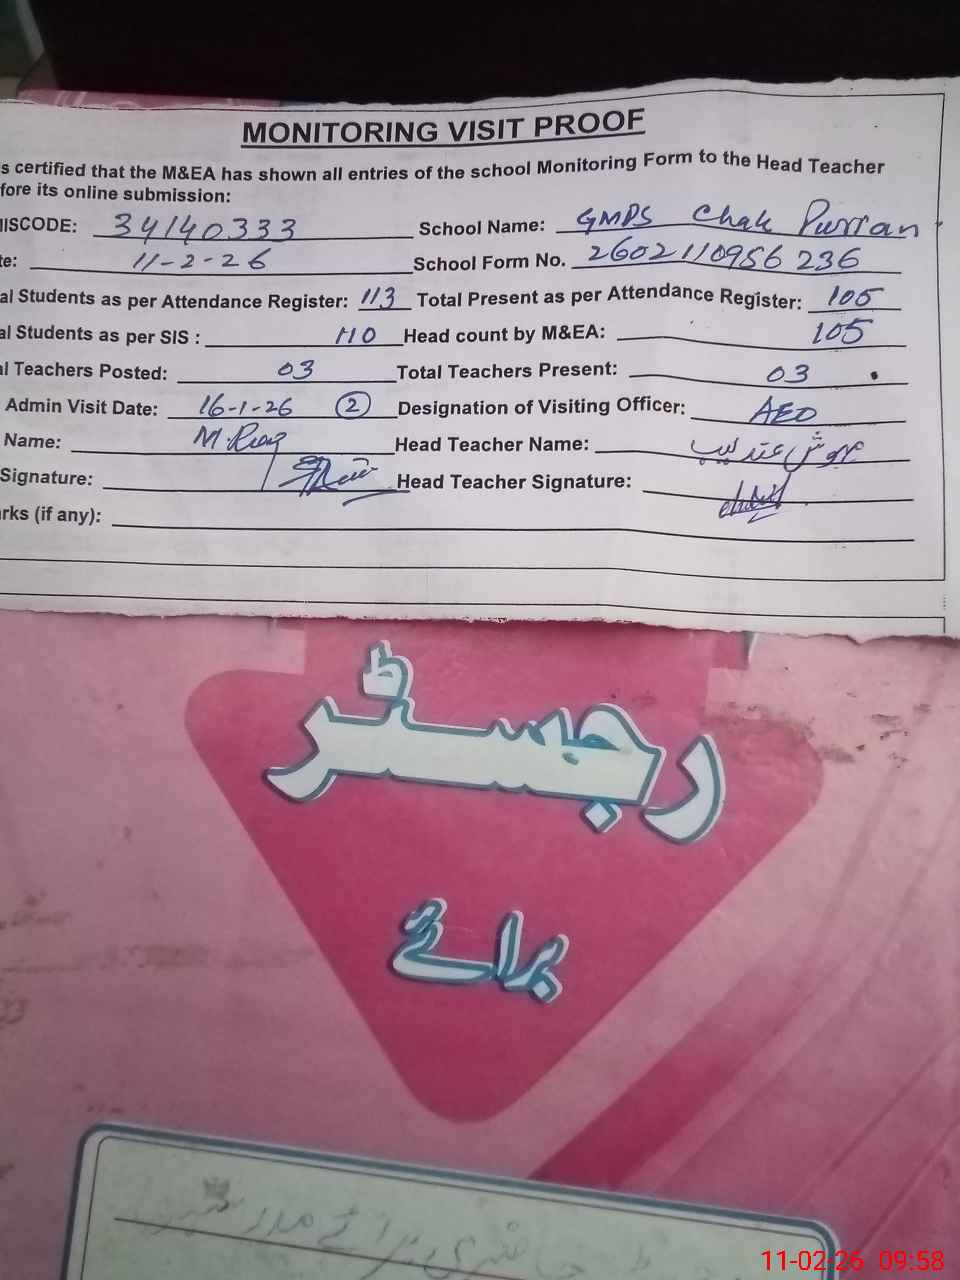 MONITORING VISIT PROOF
s certified that the M&EA has shown all entries of the school Monitoring Form to the Head Teacher
fore its online submission:
IISCODE: 34140333 School Name: GMPS Chak Purran
te: 11-2-26 School Form No. 2602110956236
al Students as per Attendance Register: 113 Total Present as per Attendance Register: 105
al Students as per SIS : 110 Head count by M&EA: 105
al Teachers Posted: 03 Total Teachers Present: 03
Admin Visit Date: 16-1-26 2 Designation of Visiting Officer: AEO
Name: M. Riaz Head Teacher Name: مہوش عندلیب
Signature: Head Teacher Signature:
rks (if any):
رجسٹر
برائے
11-02-26 09:58